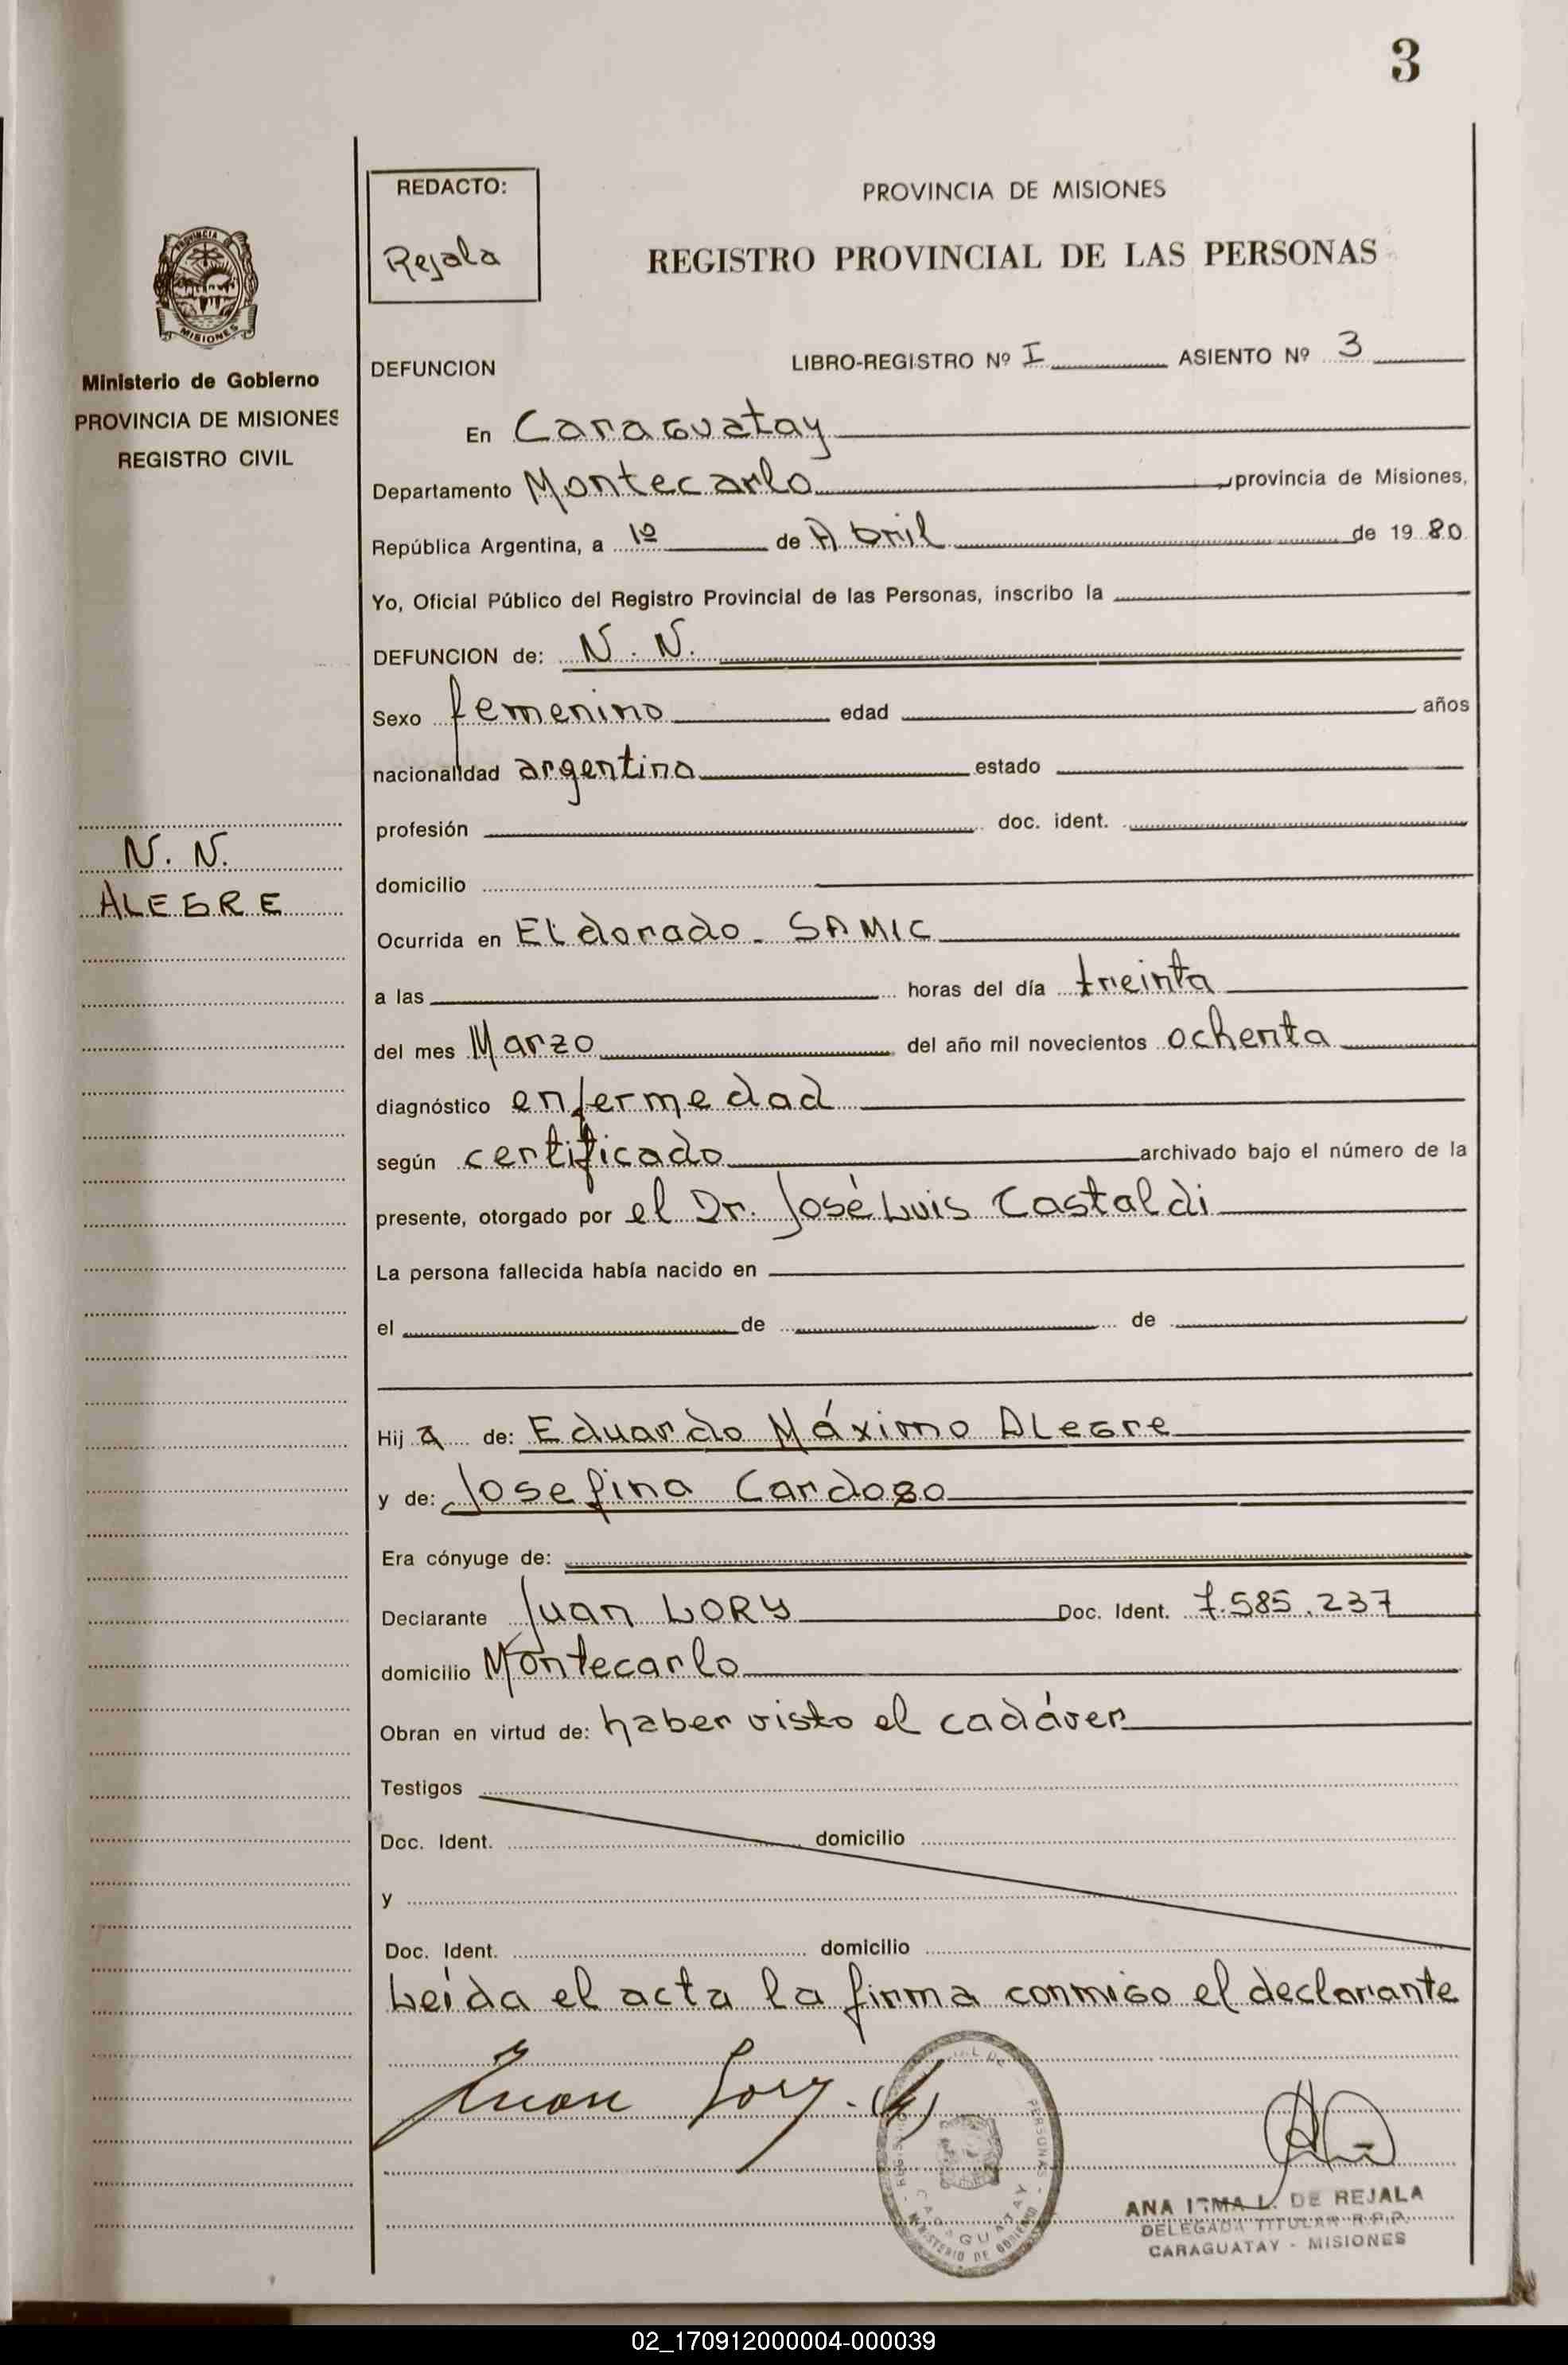 3
REDACTO:
Rejala
PROVINCIA DE MISIONES
REGISTRO PROVINCIAL DE LAS PERSONAS
PROVINCIA DE
MISIONES
Ministerio de Gobierno
PROVINCIA DE MISIONES
REGISTRO CIVIL
N. N.
ALEGRE
DEFUNCION LIBRO-REGISTRO Nº I ASIENTO Nº 3
En Caraguatay
Departamento Montecarlo, provincia de Misiones,
República Argentina, a 1º de Abril de 1980
Yo, Oficial Público del Registro Provincial de las Personas, inscribo la
DEFUNCION de: N. N.
Sexo femenino edad años
nacionalidad argentina estado
profesión doc. ident.
domicilio
Ocurrida en Eldorado - SAMIC
a las horas del día treinta
del mes Marzo del año mil novecientos ochenta
diagnóstico enfermedad
según certificado archivado bajo el número de la
presente, otorgado por el Dr. José Luis Castaldi
La persona fallecida había nacido en
el de de
Hija de: Eduardo Máximo Alegre
y de: Josefina Cardozo
Era cónyuge de:
Declarante Juan LORY Doc. Ident. 7.585.237
domicilio Montecarlo
Obran en virtud de: haber visto el cadáver
Testigos
Doc. Ident. domicilio
y
Doc. Ident. domicilio
Leída el acta la firma conmigo el declarante
Juan Lory.
CARAGUATAY
MINISTERIO DE GOBIERNO
ANA IRMA L. DE REJALA
DELEGADA TITULAR R.P.P.
CARAGUATAY - MISIONES
02_170912000004-000039